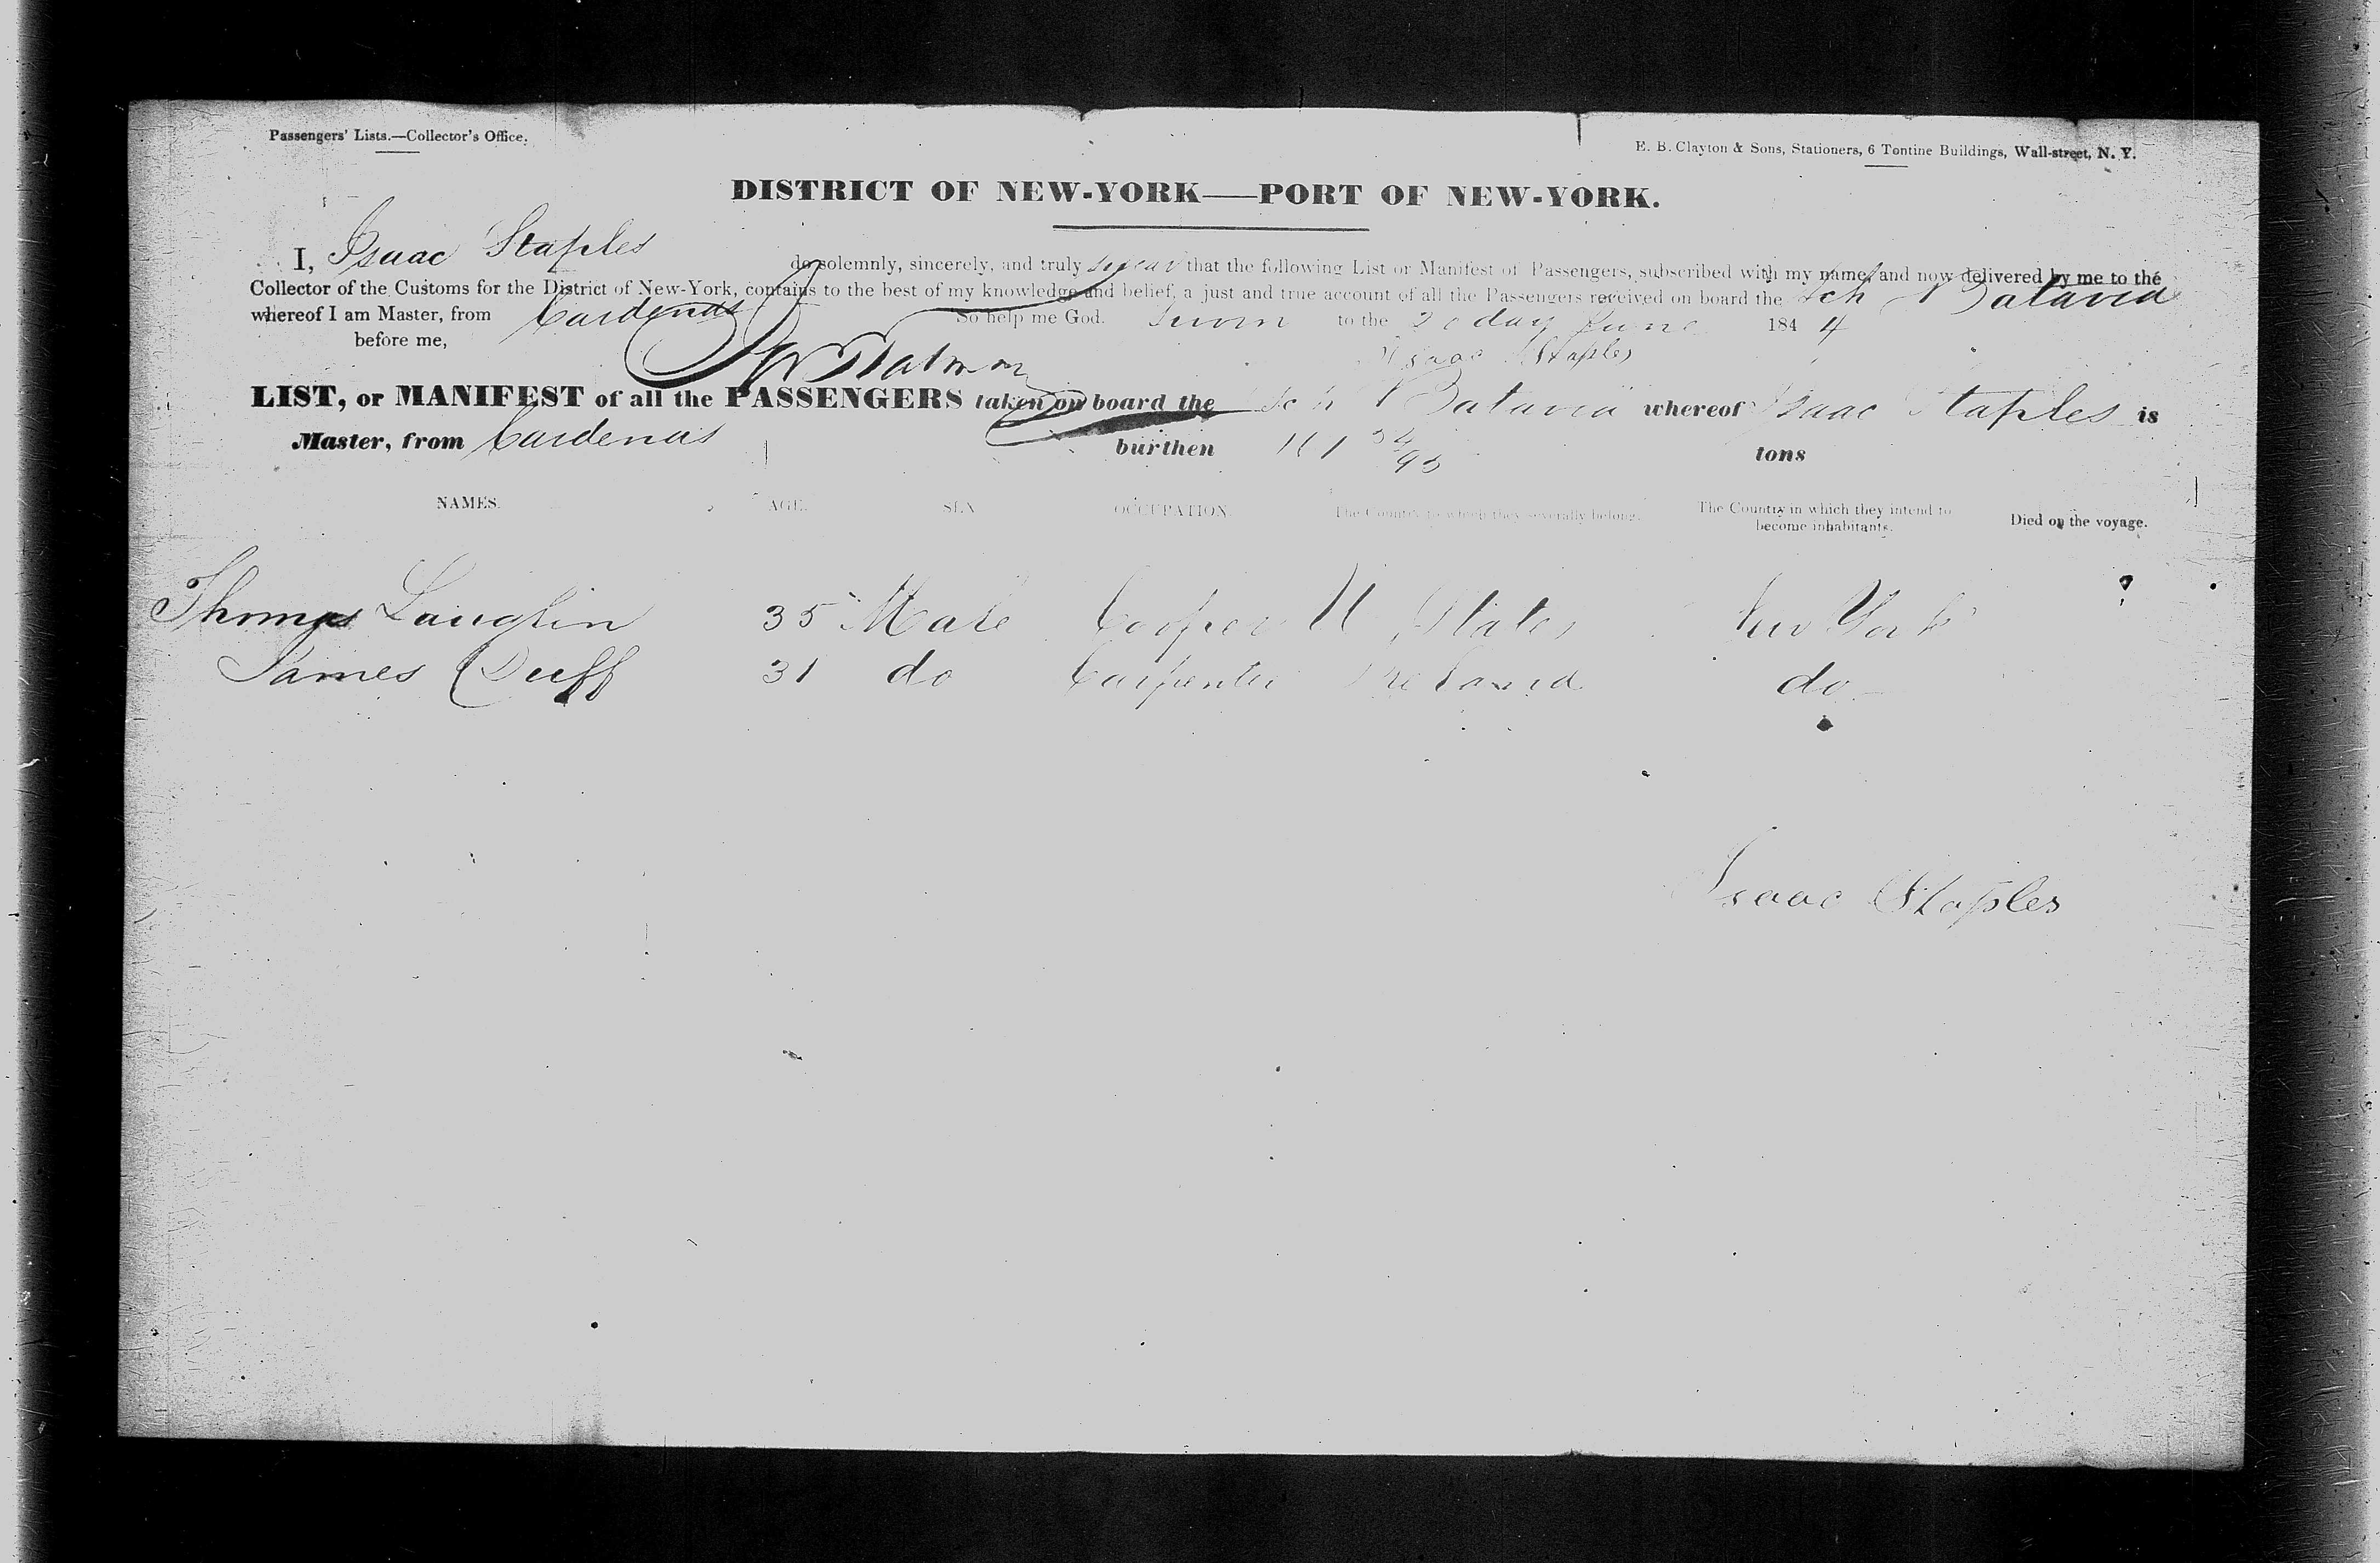 Passengers' Lists.—Collector's Office.
E. B. Clayton & Sons, Stationers, 6 Tontine Buildings, Wall-street, N. Y.
DISTRICT OF NEW-YORK——PORT OF NEW-YORK.
I, Isaac Staples do solemnly, sincerely, and truly swear that the following List or Manifest of Passengers, subscribed with my name, and now delivered by me to the
Collector of the Customs for the District of New-York, contains to the best of my knowledge and belief, a just and true account of all the Passengers received on board the Sch Batavia
whereof I am Master, from Cardenas So help me God. Sworn to the 20 day June 1844
before me, Isaac Staples
LIST, or MANIFEST of all the PASSENGERS taken on board the Sch Batavia whereof Isaac Staples is
Master, from Cardenas burthen tons
NAMES. AGE. SEX OCCUPATION. The Country to which they severally belong. The Country in which they intend to become inhabitants. Died on the voyage.
Thomas Lauglin 35 Male Cooper U States New York
James Duff 31 do Carpenter Ireland do
Isaac Staples